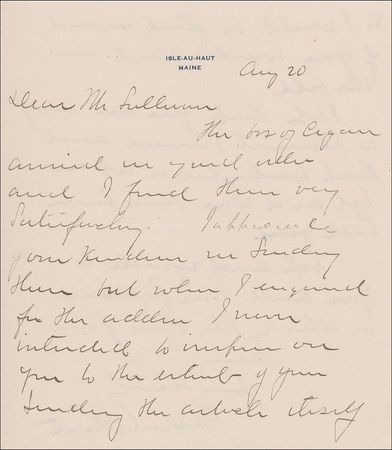 ISLE-AU-HAUT
MAINE
Aug 20
Dear Mr Sullivan
The box of Cigars
arrived in good order
and I find them very
satisfactory. I appreciate
your kindness in sending
them but when I enquired
for the address I never
intended to impose on
you to the extent of your
sending the article itself